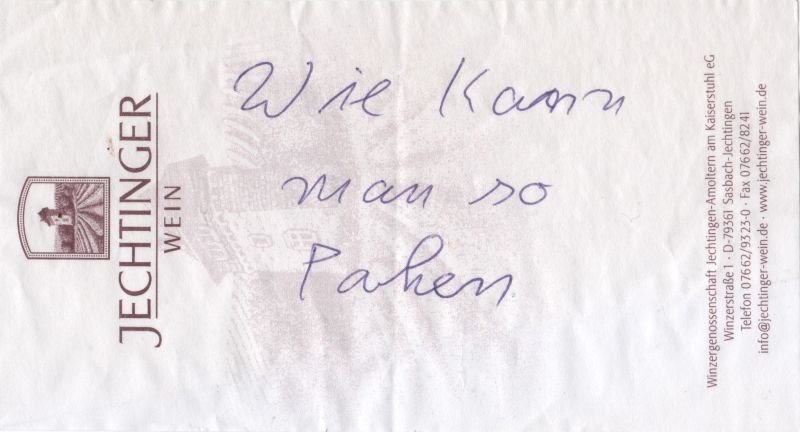 JECHTINGER
WEIN
Wie Kann
man so
Paken
Winzergenossenschaft Jechtingen-Amoltern am Kaiserstuhl eG
Winzerstraße 1 · D-79361 Sasbach-Jechtingen
Telefon 07662/9323-0 · Fax 07662/8241
info@jechtinger-wein.de · www.jechtinger-wein.de